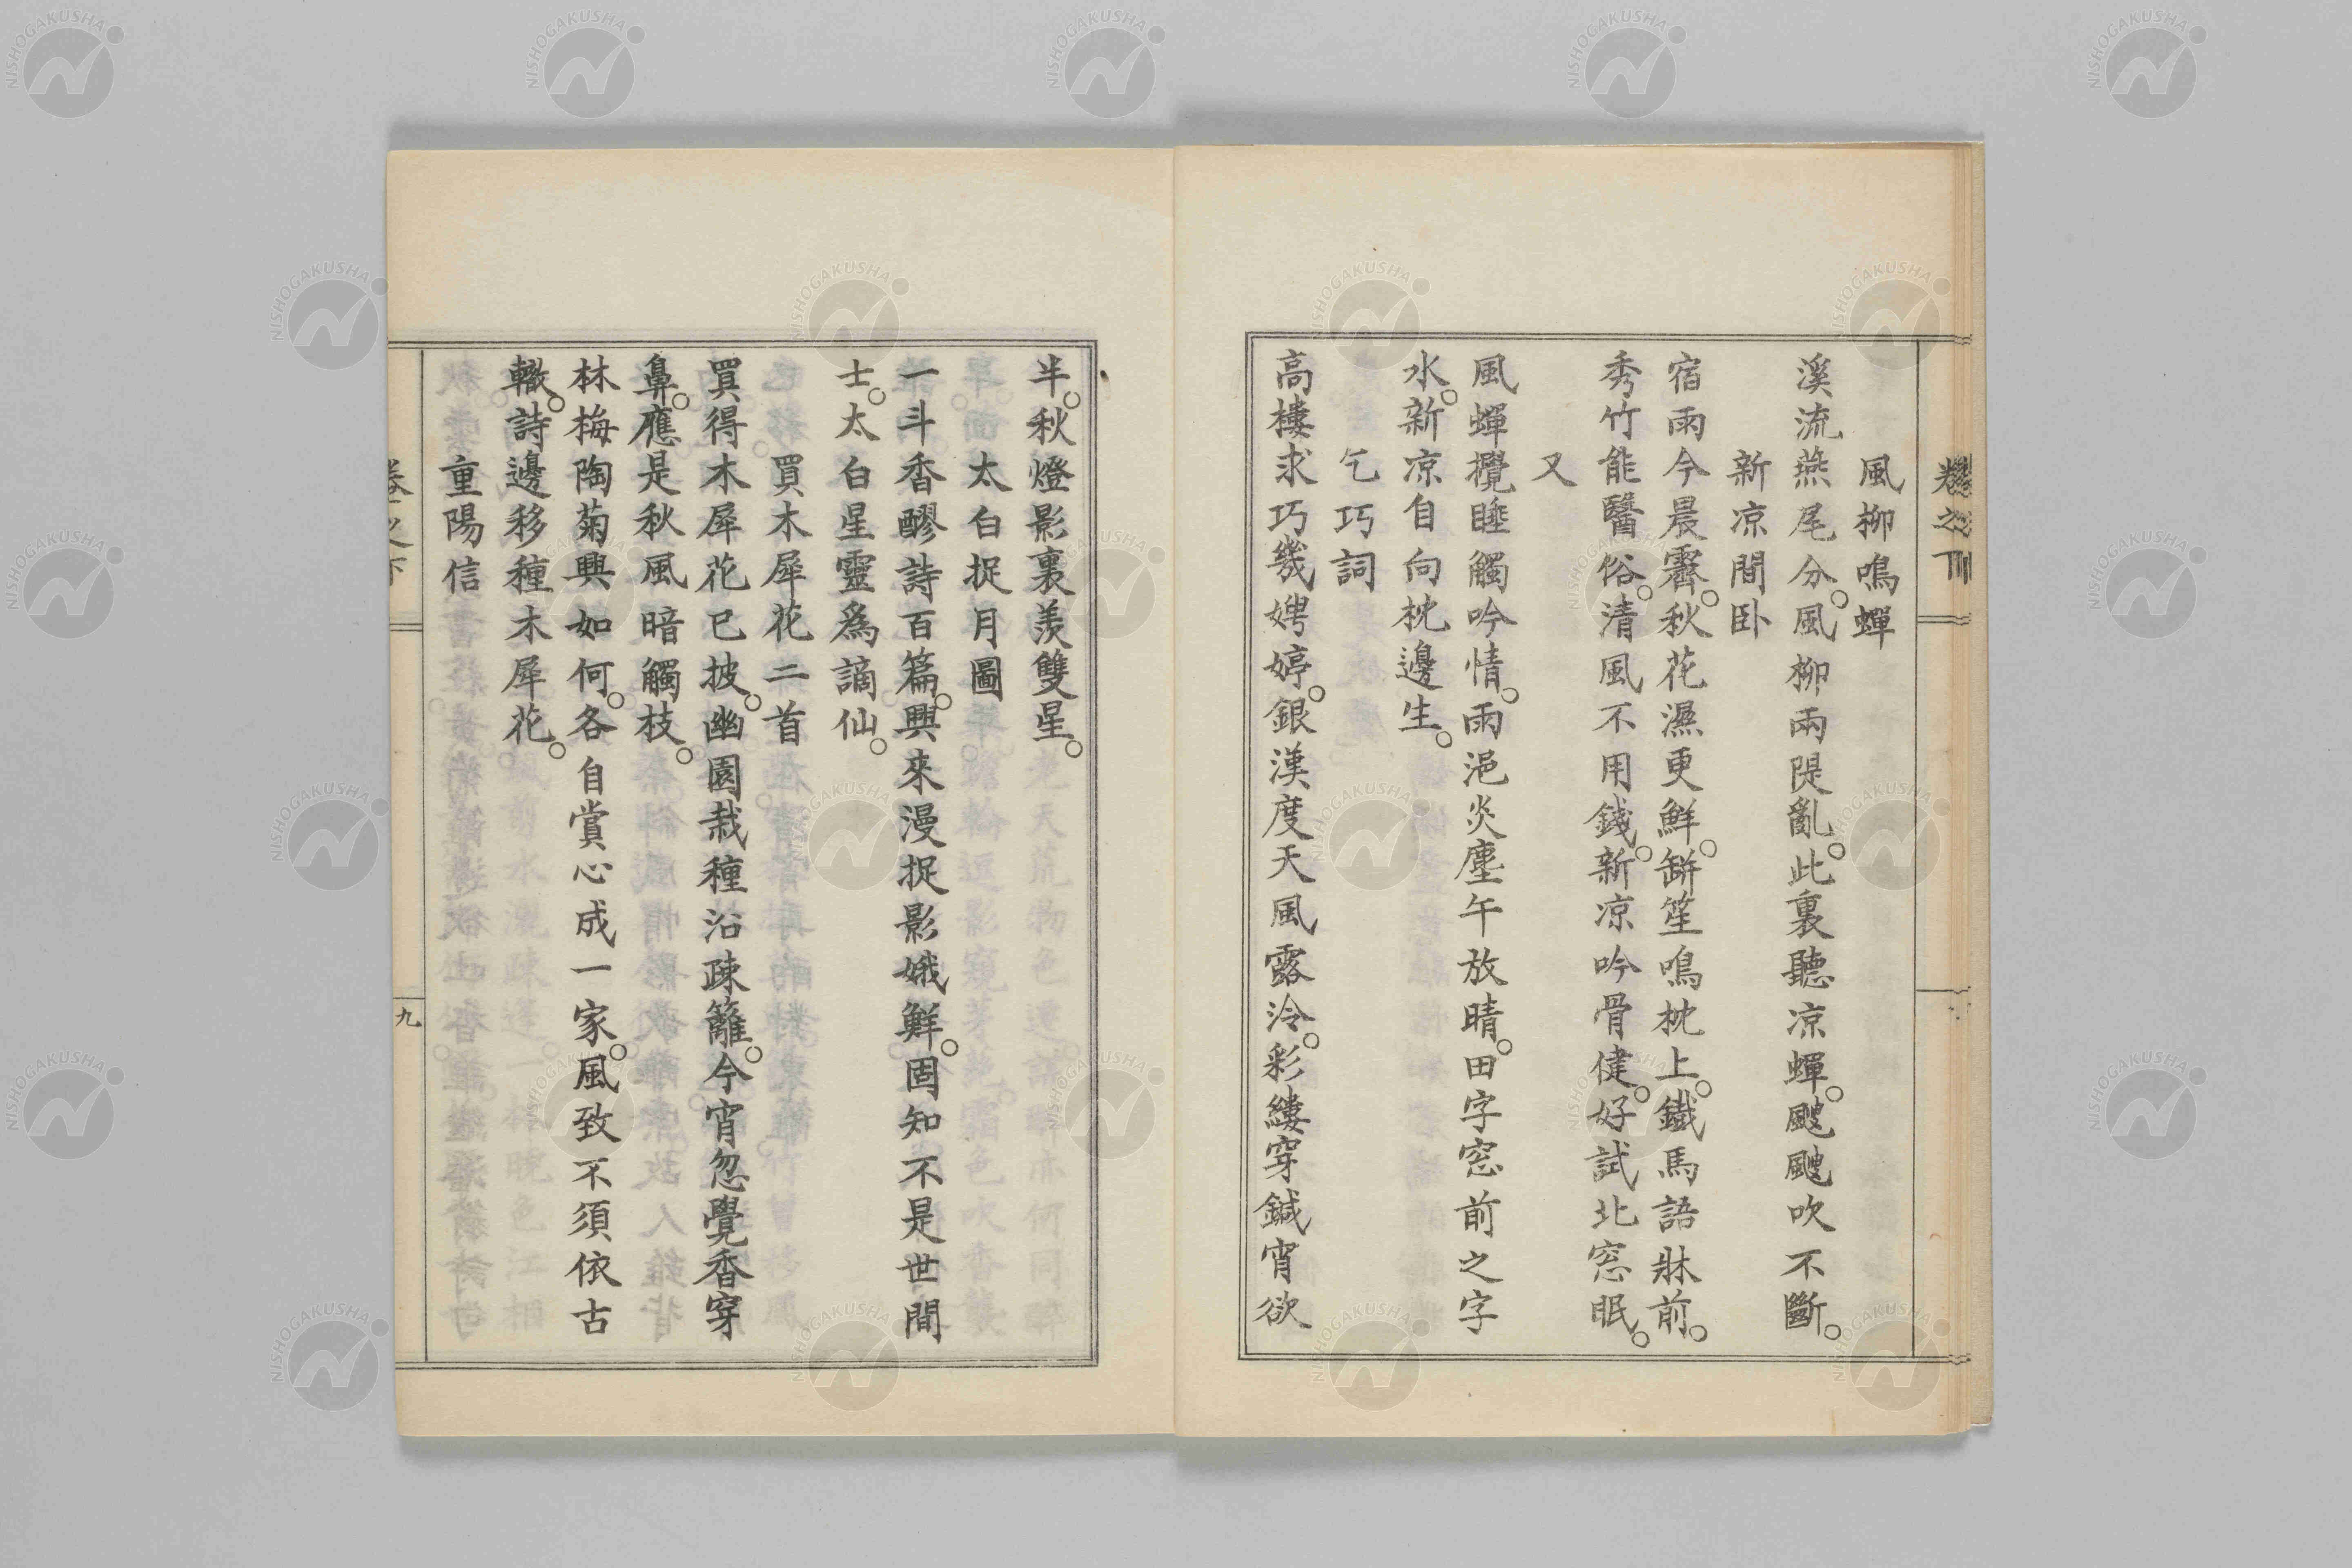 風柳鳴蟬
溪流燕尾分。風柳兩隄亂。此裏聽凉蟬。颼颼吹不斷。
新凉間卧
宿雨今晨霽。秋花濕更鮮。缾笙鳴枕上。鐵馬語牀前。
秀竹能醫俗。清風不用錢。新凉吟骨健。好試北窓眠。
又
風蟬攪睡觸吟情。雨浥炎塵午放晴。田字窓前之字
水。新凉自向枕邊生。
乞巧詞
高樓求巧幾娉婷。銀漢度天風露泠。彩縷穿鍼宵欲
半。秋燈影裏羨雙星。
太白捉月圖
一斗香醪詩百篇。興來漫捉影娥鮮。固知不是世間
士。太白星靈爲謫仙。
買木犀花二首
買得木犀花已披。幽園栽種沿疎籬。今宵忽覺香穿
鼻。應是秋風暗觸枝。
林梅陶菊興如何。各自賞心成一家。風致不須依古
轍。詩邊移種木犀花。
重陽信
九
NISHOGAKUSHA